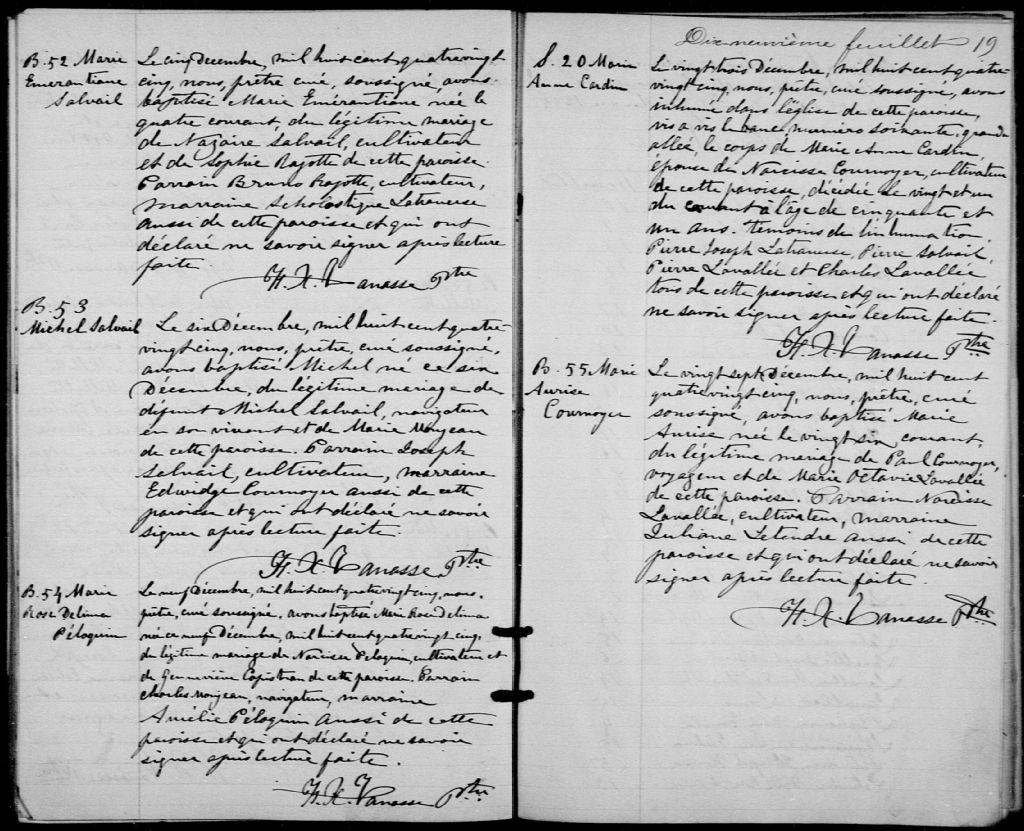 B. 52 Marie
Emérantiane
Salvail
Le cinq Décembre, mil huit cent quatre vingt
cinq, nous, prêtre curé, soussigné, avons
baptisé Marie Emérantiane née le
quatre courant, du légitime mariage
de Nazaire Salvail, cultivateur
et de Sophie Rajotte de cette paroisse.
Parrain Bruno Rajotte, cultivateur,
marraine Scholastique Laharusse
aussi de cette paroisse et qui ont
déclaré ne savoir signer après lecture
faite
F. X. Vanasse Ptre
B. 53
Michel Salvail
Le six Décembre, mil huit cent quatre-
vingt cinq, nous, prêtre, curé soussigné,
avons baptisé Michel né ce six
Décembre, du légitime mariage de
défunt Michel Salvail, navigateur
en son vivant et de Marie Mongeau
de cette paroisse. Parrain Joseph
Salvail, cultivateur, marraine
Edwidge Cournoyer aussi de cette
paroisse et qui ont déclaré ne savoir
signer après lecture faite.
F. X. Vanasse Ptre
B. 54 Marie
Rose Delima
Péloquin
Le neuf Décembre, mil huit cent quatre vingt cinq, nous,
prêtre, curé soussigné, avons baptisé Marie Rose Delima
née ce neuf Décembre, mil huit cent quatre vingt cinq,
du légitime mariage de Narcisse Péloquin, cultivateur et
de Geneviève Capistran de cette paroisse. Parrain
Charles Mongeau, navigateur, marraine
Amélie Péloquin aussi de cette
paroisse et qui ont déclaré ne savoir
signer après lecture faite.
F. X. Vanasse Ptre
Dix-neuvième feuillet 19
S. 20 Marie
Anne Cardin
Le vingt trois Décembre, mil huit cent quatre-
vingt cinq, nous, prêtre, curé soussigné, avons
inhumé dans l'église de cette paroisse,
vis à vis le banc numéro soixante, grande
allée, le corps de Marie Anne Cardin,
épouse de Narcisse Cournoyer, cultivateur
de cette paroisse, décédée le vingt et un
du courant à l'âge de cinquante et
un ans. témoins de l'inhumation,
Pierre Joseph Laharusse, Pierre Salvail,
Pierre Lavallée et Charles Lavallée
tous de cette paroisse et qui ont déclaré
ne savoir signer après lecture faite.
F. X. Vanasse Ptre
B. 55 Marie
Aurise
Cournoyer
Le vingt sept Décembre, mil huit cent
quatre vingt cinq, nous, prêtre, curé
soussigné, avons baptisé Marie
Aurise née le vingt six courant,
du légitime mariage de Paul Cournoyer,
voyageur et de Marie Octavie Lavallée
de cette paroisse. Parrain Narcisse
Lavallée, cultivateur, marraine
Juliane Letendre aussi de cette
paroisse et qui ont déclaré ne savoir
signer après lecture faite.
F. X. Vanasse Ptre